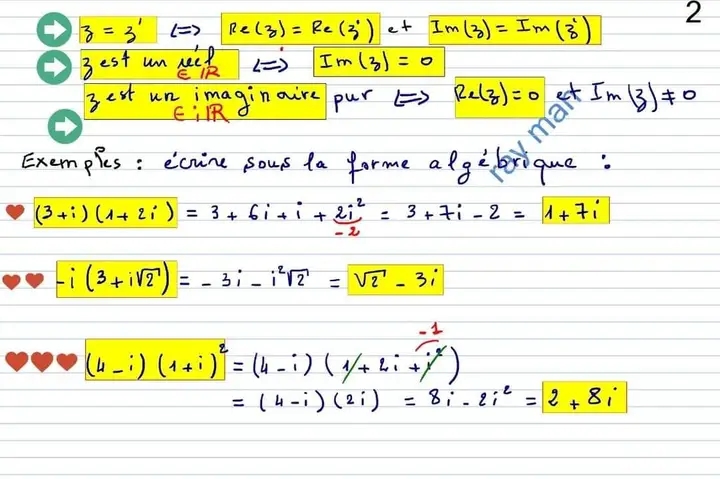 2
z = z' <=> Re(z) = Re(z') et Im(z) = Im(z')
z est un réel <=> Im(z) = 0
∈ ℝ
z est un imaginaire pur <=> Re(z) = 0 et Im(z) ≠ 0
∈ iℝ
ray man
Exemples : écrire sous la forme algébrique :
(3+i)(1+2i) = 3 + 6i + i + 2i² = 3 + 7i - 2 = 1 + 7i
-2
-i(3+i√2) = -3i - i²√2 = √2 - 3i
-1
(4-i)(1+i)² = (4-i)(1 + 2i + i²)
= (4-i)(2i) = 8i - 2i² = 2 + 8i